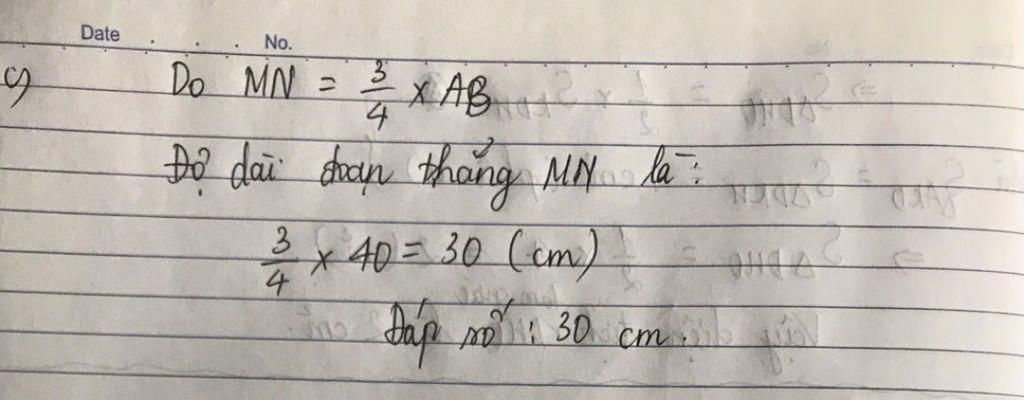 Date . . . No.
c) Do MN = 3/4 x AB
Độ dài đoạn thẳng MN là:
3/4 x 40 = 30 (cm)
Đáp số: 30 cm.